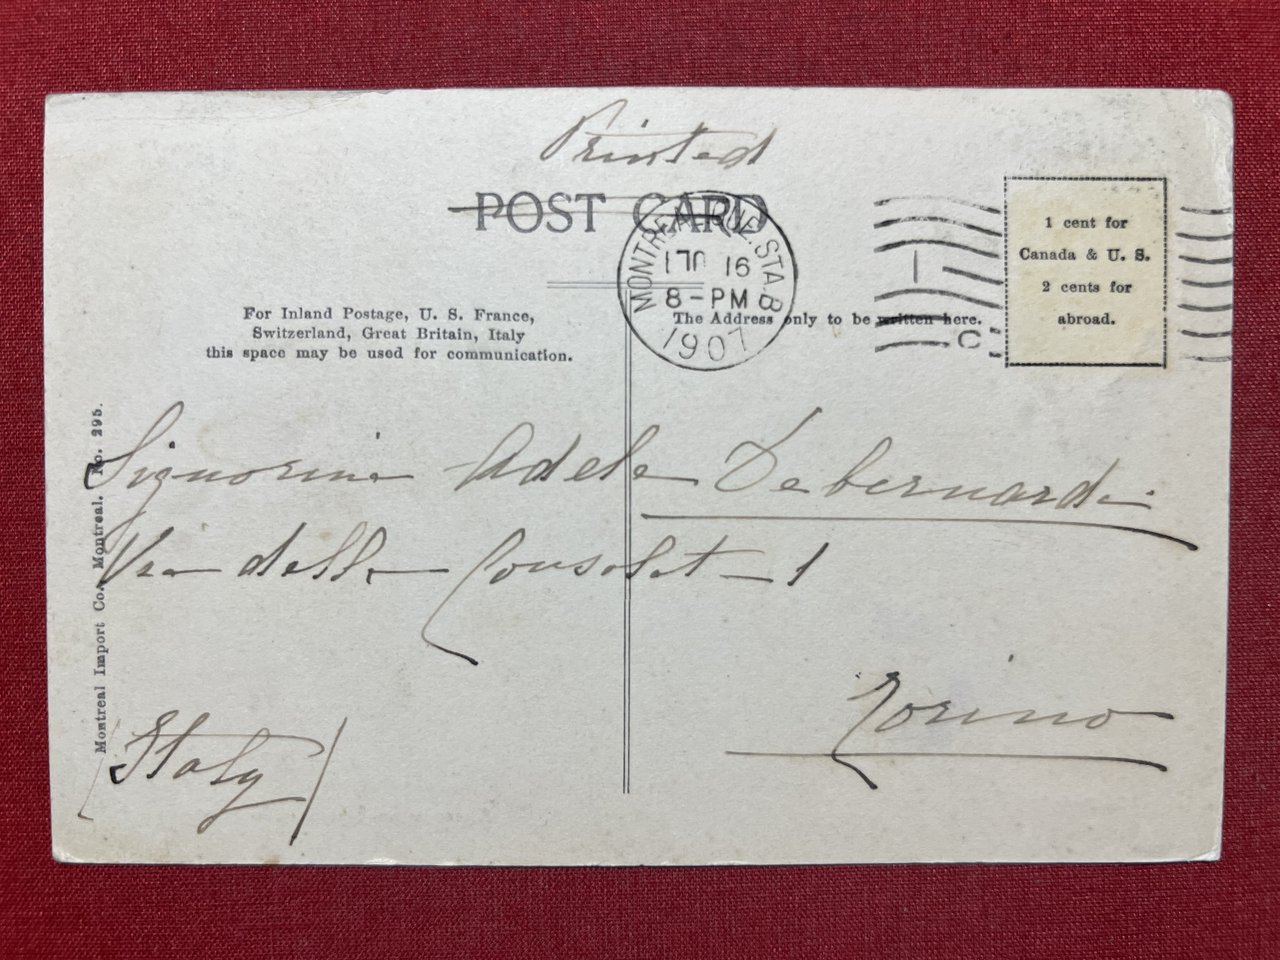 Printed
POST CARD
MONTREAL, QUE. STA. B
16
8-PM
1907
C
1 cent for
Canada & U. S.
2 cents for
abroad.
For Inland Postage, U. S. France,
Switzerland, Great Britain, Italy
this space may be used for communication.
The Address only to be written here.
Signorina Adele Debernardi
Via della Consolata 1
Torino
(Italy)
Montreal Import Co., Montreal. No. 295.